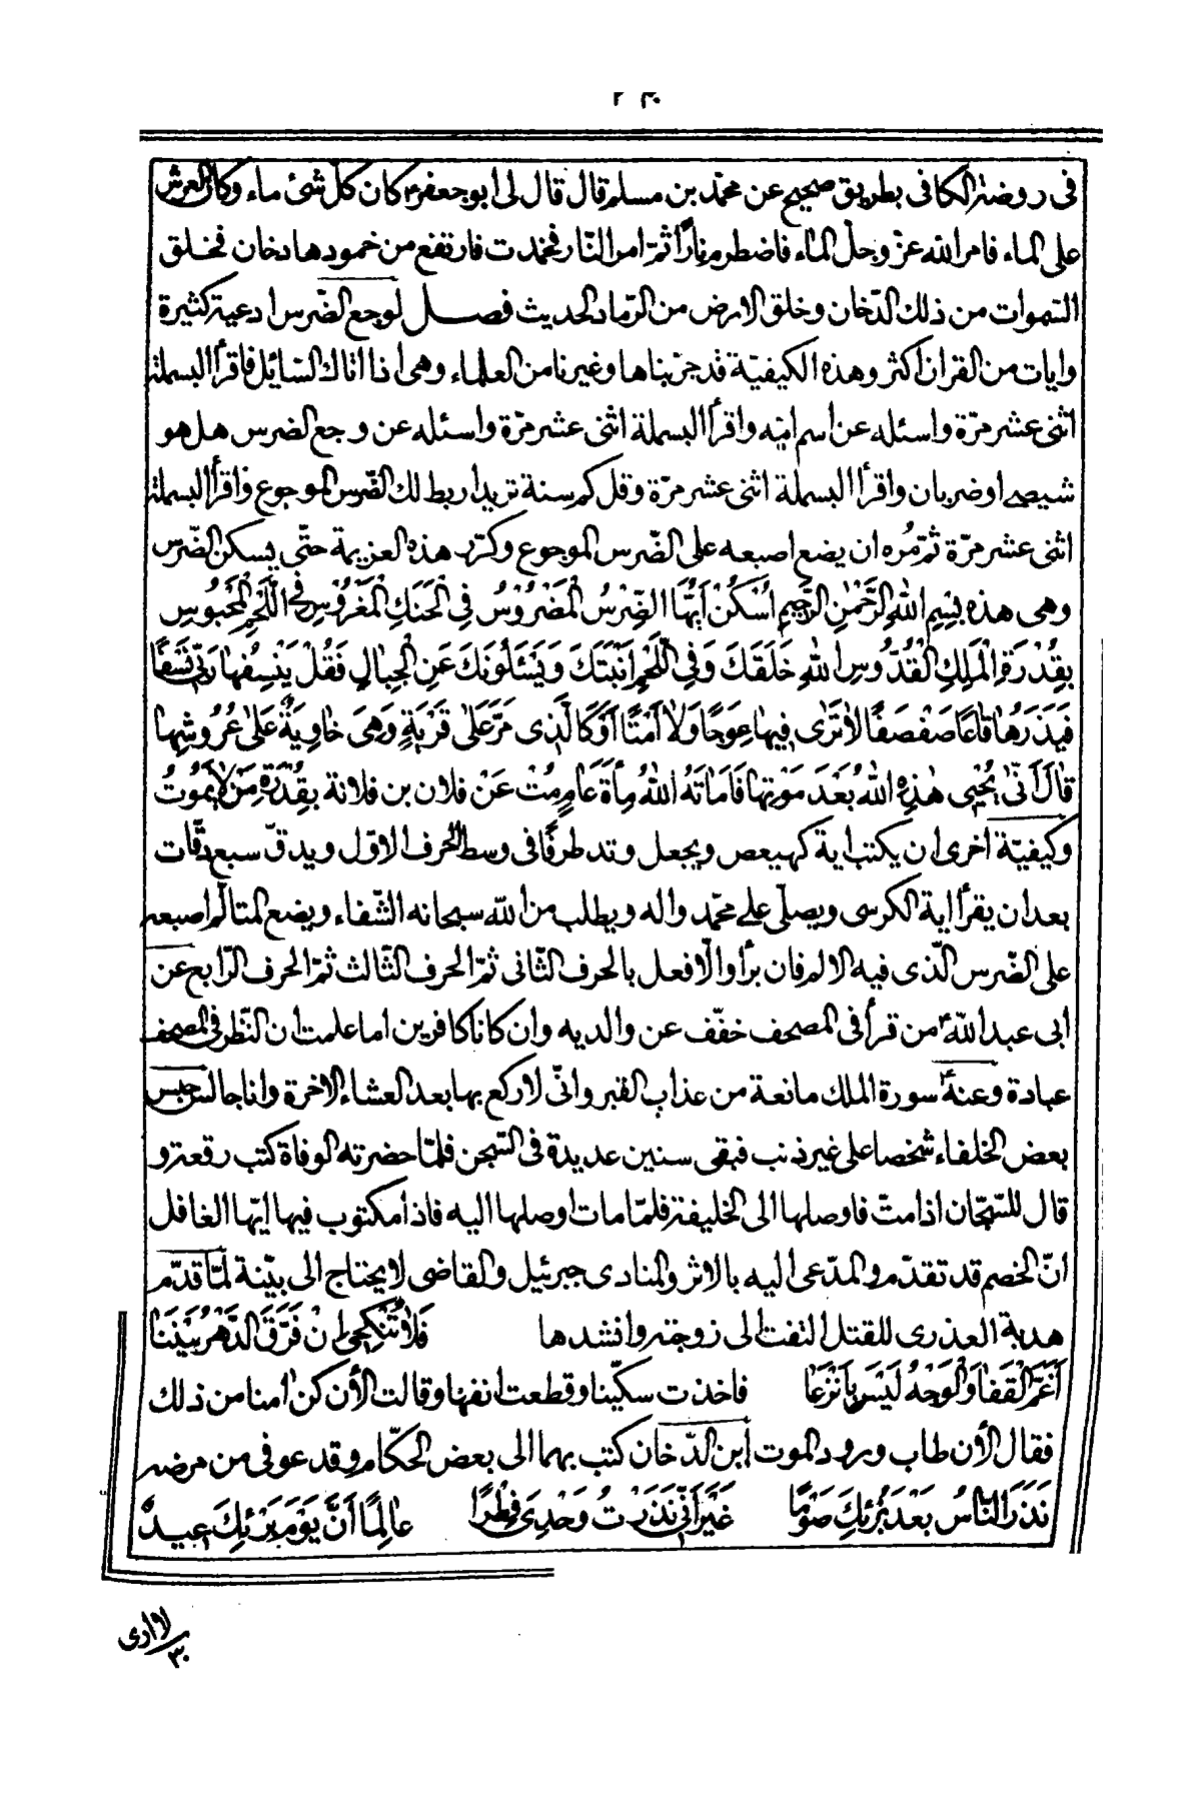 ٢٣٠
فى روضة الكافى بطريق صحيح عن محمّد بن مسلم قال قال لى ابو جعفرؑ كان كلّ شئ ماء وكان العرش
على الماء فامر الله عزّ وجلّ الماء فاضطرم نارًا ثمّ امر النّار فخمدت فارتفع من خمودها دخان فخلق
السّموات من ذلك الدّخان وخلق الارض من الرّماد الحديث فصل لوجع الضّرس ادعية كثيرة
وايات من القران اكثر وهذه الكيفيّة قد جرّبناها وغيرنا من العلماء وهى اذا اتاك السّايل فاقرأ البسملة
اثنى عشر مرّة واسئله عن اسم امّه واقرأ البسملة اثنى عشر مرّة واسئله عن وجع الضرس هل هو
شيصى او ضربان واقرأ البسملة اثنى عشر مرّة وقل كم سنة تريد اربط لك الضّرس الموجوع واقرأ البسملة
اثنى عشر مرّة ثمّ مُره ان يضع اصبعه على الضّرس الموجوع وكرّر هذه العزيمة حتّى يسكن الضّرس
وهى هذه بِسْمِ اللهِ الرَّحْمٰنِ الرَّحِيمِ اُسْكُنْ اَيُّهَا الضِّرْسُ الْمَضْرُوْسُ فِي الْحَنَكِ الْمَغْرُوْسِ فِي اللَّحْمِ الْمَحْبُوسِ
بِقُدْرَةِ الْمَلِكِ الْقُدُّوسِ اللهِ خَلَقَكَ وَفِي اللَّحْمِ اَنْبَتَكَ وَيَسْئَلُونَكَ عَنِ الْجِبَالِ فَقُلْ يَنْسِفُهَا رَبّى نَسْفًا
فَيَذَرُهَا قَاعًا صَفْصَفًا لَا تَرٰى فِيهَا عِوَجًا وَلَا اَمْتًا اَوْ كَالَّذِى مَرَّ عَلىٰ قَرْيَةٍ وَهِىَ خَاوِيَةٌ عَلىٰ عُرُوشِهَا
قَالَ اَنّىٰ يُحْيِى هٰذِهِ اللهُ بَعْدَ مَوْتِهَا فَاَمَاتَهُ اللهُ مِأَةَ عَامٍ مُتْ عَنْ فلان بن فلانة بِقُدْرَةِ مَنْ لَا يَمُوتُ
وكيفيّة اخرى ان يكتب اية كهيعص ويجعل وتد طرفًا فى وسط الحرف الاوّل ويدقّ سبع دقّات
بعد ان يقرأ اية الكرسى ويصلّى على محمّد واله ويطلب من الله سبحانه الشّفاء ويضع المتالّم اصبعه
على الضّرس الّذى فيه الالم فان برأ والّا فعل بالحرف الثّانى ثمّ الحرف الثّالث ثمّ الحرف الرّابع عن
ابى عبد اللهؑ من قرأ فى المصحف خفّف عن والديه وان كانا كافرين اما علمت ان النّظر فى المصحف
عبادة وعنهؑ سورة الملك مانعة من عذاب القبر وانّى لاركع بها بعد العشاء الاخرة وانا جالس حبس
بعض الخلفاء شخصا على غير ذنب فبقى سنين عديدة فى السّجن فلمّا حضرته الوفاة كتب رقعة و
قال للسّجّان اذا متّ فاوصلها الى الخليفة فلمّا مات اوصلها اليه فاذا مكتوب فيها ايّها الغافل
انّ الخصم قد تقدّم والمدّعى اليه بالاثر والمنادى جبرئيل والقاضى لا يحتاج الى بيّنة لمّا قدّم
هدبة العذرى للقتل التفت الى زوجته وانشدها فَلَا تُنْكِحِى اِنْ فَرَّقَ الدَّهْرُ بَيْنَنَا
اَغَمَّ الْقَفَا وَالْوَجْهُ لَيْسَ بِاَنْزَعَا فاخذت سكّينا وقطعت انفها وقالت الأن كن امنا من ذلك
فقال الأن طاب ورود الموت ابن الدّخان كتب بهما الى بعض الحكّام وقد عوفى من مرضه
نَذَرَ النَّاسُ بَعْدَ بُرْئِكَ صَوْمًا غَيْرَ اَنّى نَذَرْتُ وَحْدِىَ فِطْرًا عَالِمًا اَنَّ يَوْمَ بُرْئِكَ عِيدٌ
لا ارى
٣٠